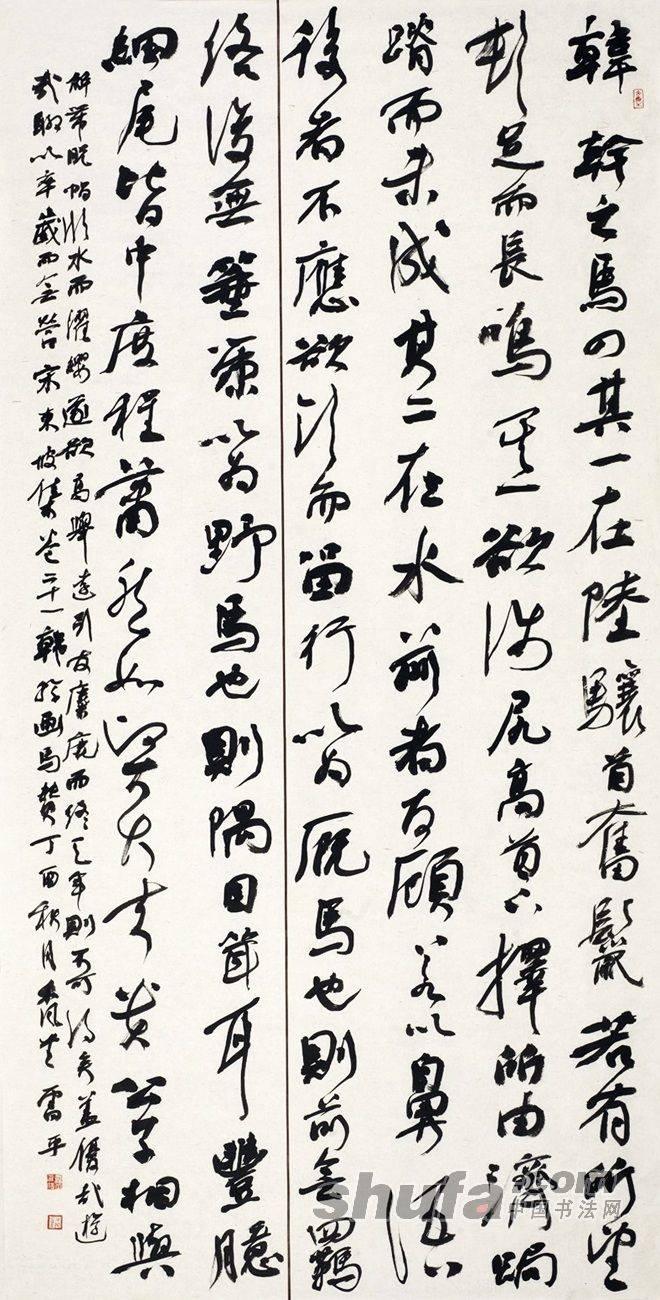 韓幹之馬四其一在陸驤首奮鬣若有所望
頓足而長鳴其一欲涉尻高首下擇所由濟跼
蹐而未成其二在水前者反顧若以鼻語
後者不應欲飲而留行以為廄馬也則前無羈
絡後無箠策以為野馬也則隅目聳耳豐臆
細尾皆中度程蕭然如賢大夫貴公子相與
解帶脫帽臨水而濯纓遂欲高舉遠引友麋鹿而終天年則不可得矣蓋優哉游
哉聊以卒歲而無營宋東坡集卷二十一韓幹畫馬贊丁酉秋月雷平
shufa.com
中国书法网